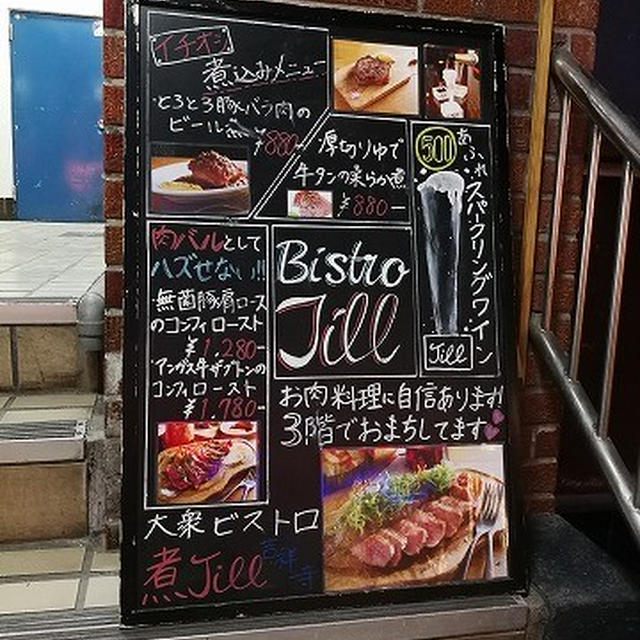 イチオシ
煮込みメニュー
・とろとろ豚バラ肉の
ビール煮 ¥880-
厚切りゆで
牛タンの柔らか煮
¥880-
500
あふれスパークリングワイン
Jill
肉バルとして
ハズせない!!
・無菌豚肩ロース
のコンフィロースト
¥1,280-
・アンガス牛ザブトンの
コンフィロースト
¥1,780-
Bistro
Jill
お肉料理に自信あります!
3階でおまちしてます
大衆ビストロ
煮Jill 吉祥寺